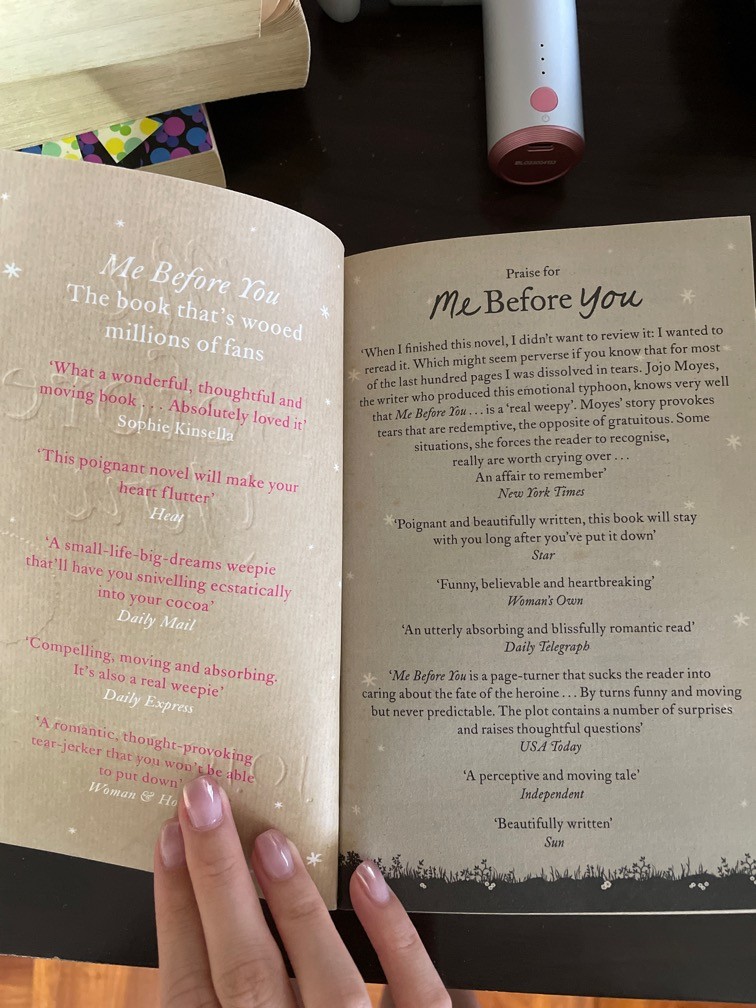 Me Before You
The book that's wooed
millions of fans
'What a wonderful, thoughtful and
moving book . . . Absolutely loved it'
Sophie Kinsella
'This poignant novel will make your
heart flutter'
Heat
'A small-life-big-dreams weepie
that'll have you snivelling ecstatically
into your cocoa'
Daily Mail
'Compelling, moving and absorbing.
It's also a real weepie'
Daily Express
'A romantic, thought-provoking
tear-jerker that you won't be able
to put down'
Woman &
Praise for
Me Before You
'When I finished this novel, I didn't want to review it: I wanted to
reread it. Which might seem perverse if you know that for most
of the last hundred pages I was dissolved in tears. Jojo Moyes,
the writer who produced this emotional typhoon, knows very well
that Me Before You . . . is a 'real weepy'. Moyes' story provokes
tears that are redemptive, the opposite of gratuitous. Some
situations, she forces the reader to recognise,
really are worth crying over . . .
An affair to remember'
New York Times
'Poignant and beautifully written, this book will stay
with you long after you've put it down'
Star
'Funny, believable and heartbreaking'
Woman's Own
'An utterly absorbing and blissfully romantic read'
Daily Telegraph
'Me Before You is a page-turner that sucks the reader into
caring about the fate of the heroine . . . By turns funny and moving
but never predictable. The plot contains a number of surprises
and raises thoughtful questions'
USA Today
'A perceptive and moving tale'
Independent
'Beautifully written'
Sun